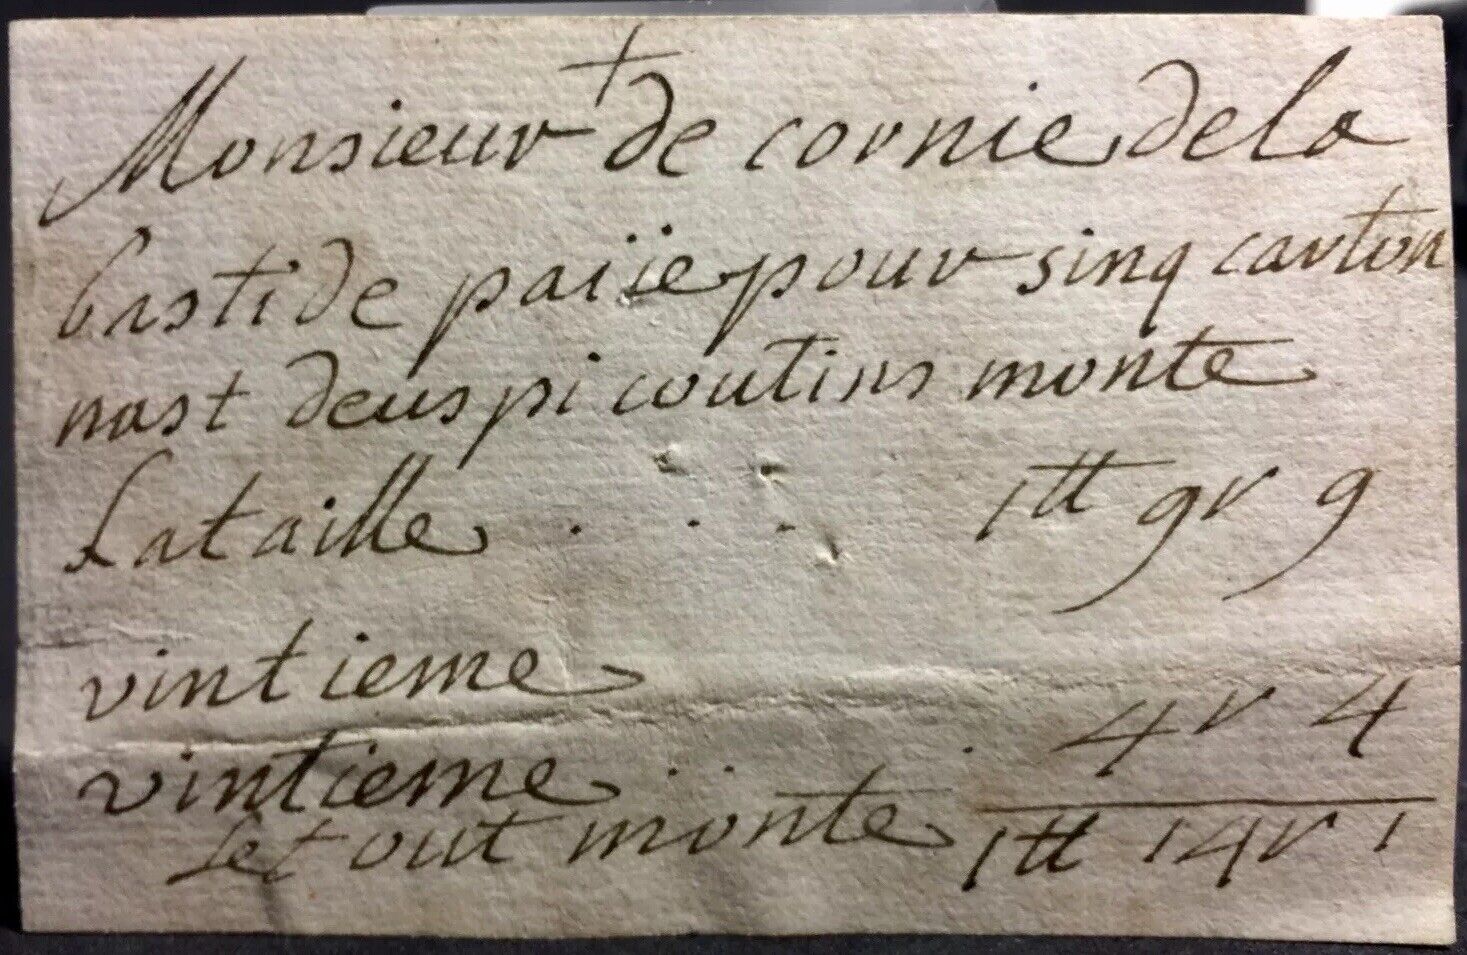 +
Monsieur de cornie dela
bastide païïe pour sinq carton
nast deus picoutins monte
Lataille . . . 1tt 9r 9
vintieme
vintieme . . . 4r 4
Letout monte 1tt 14r 1